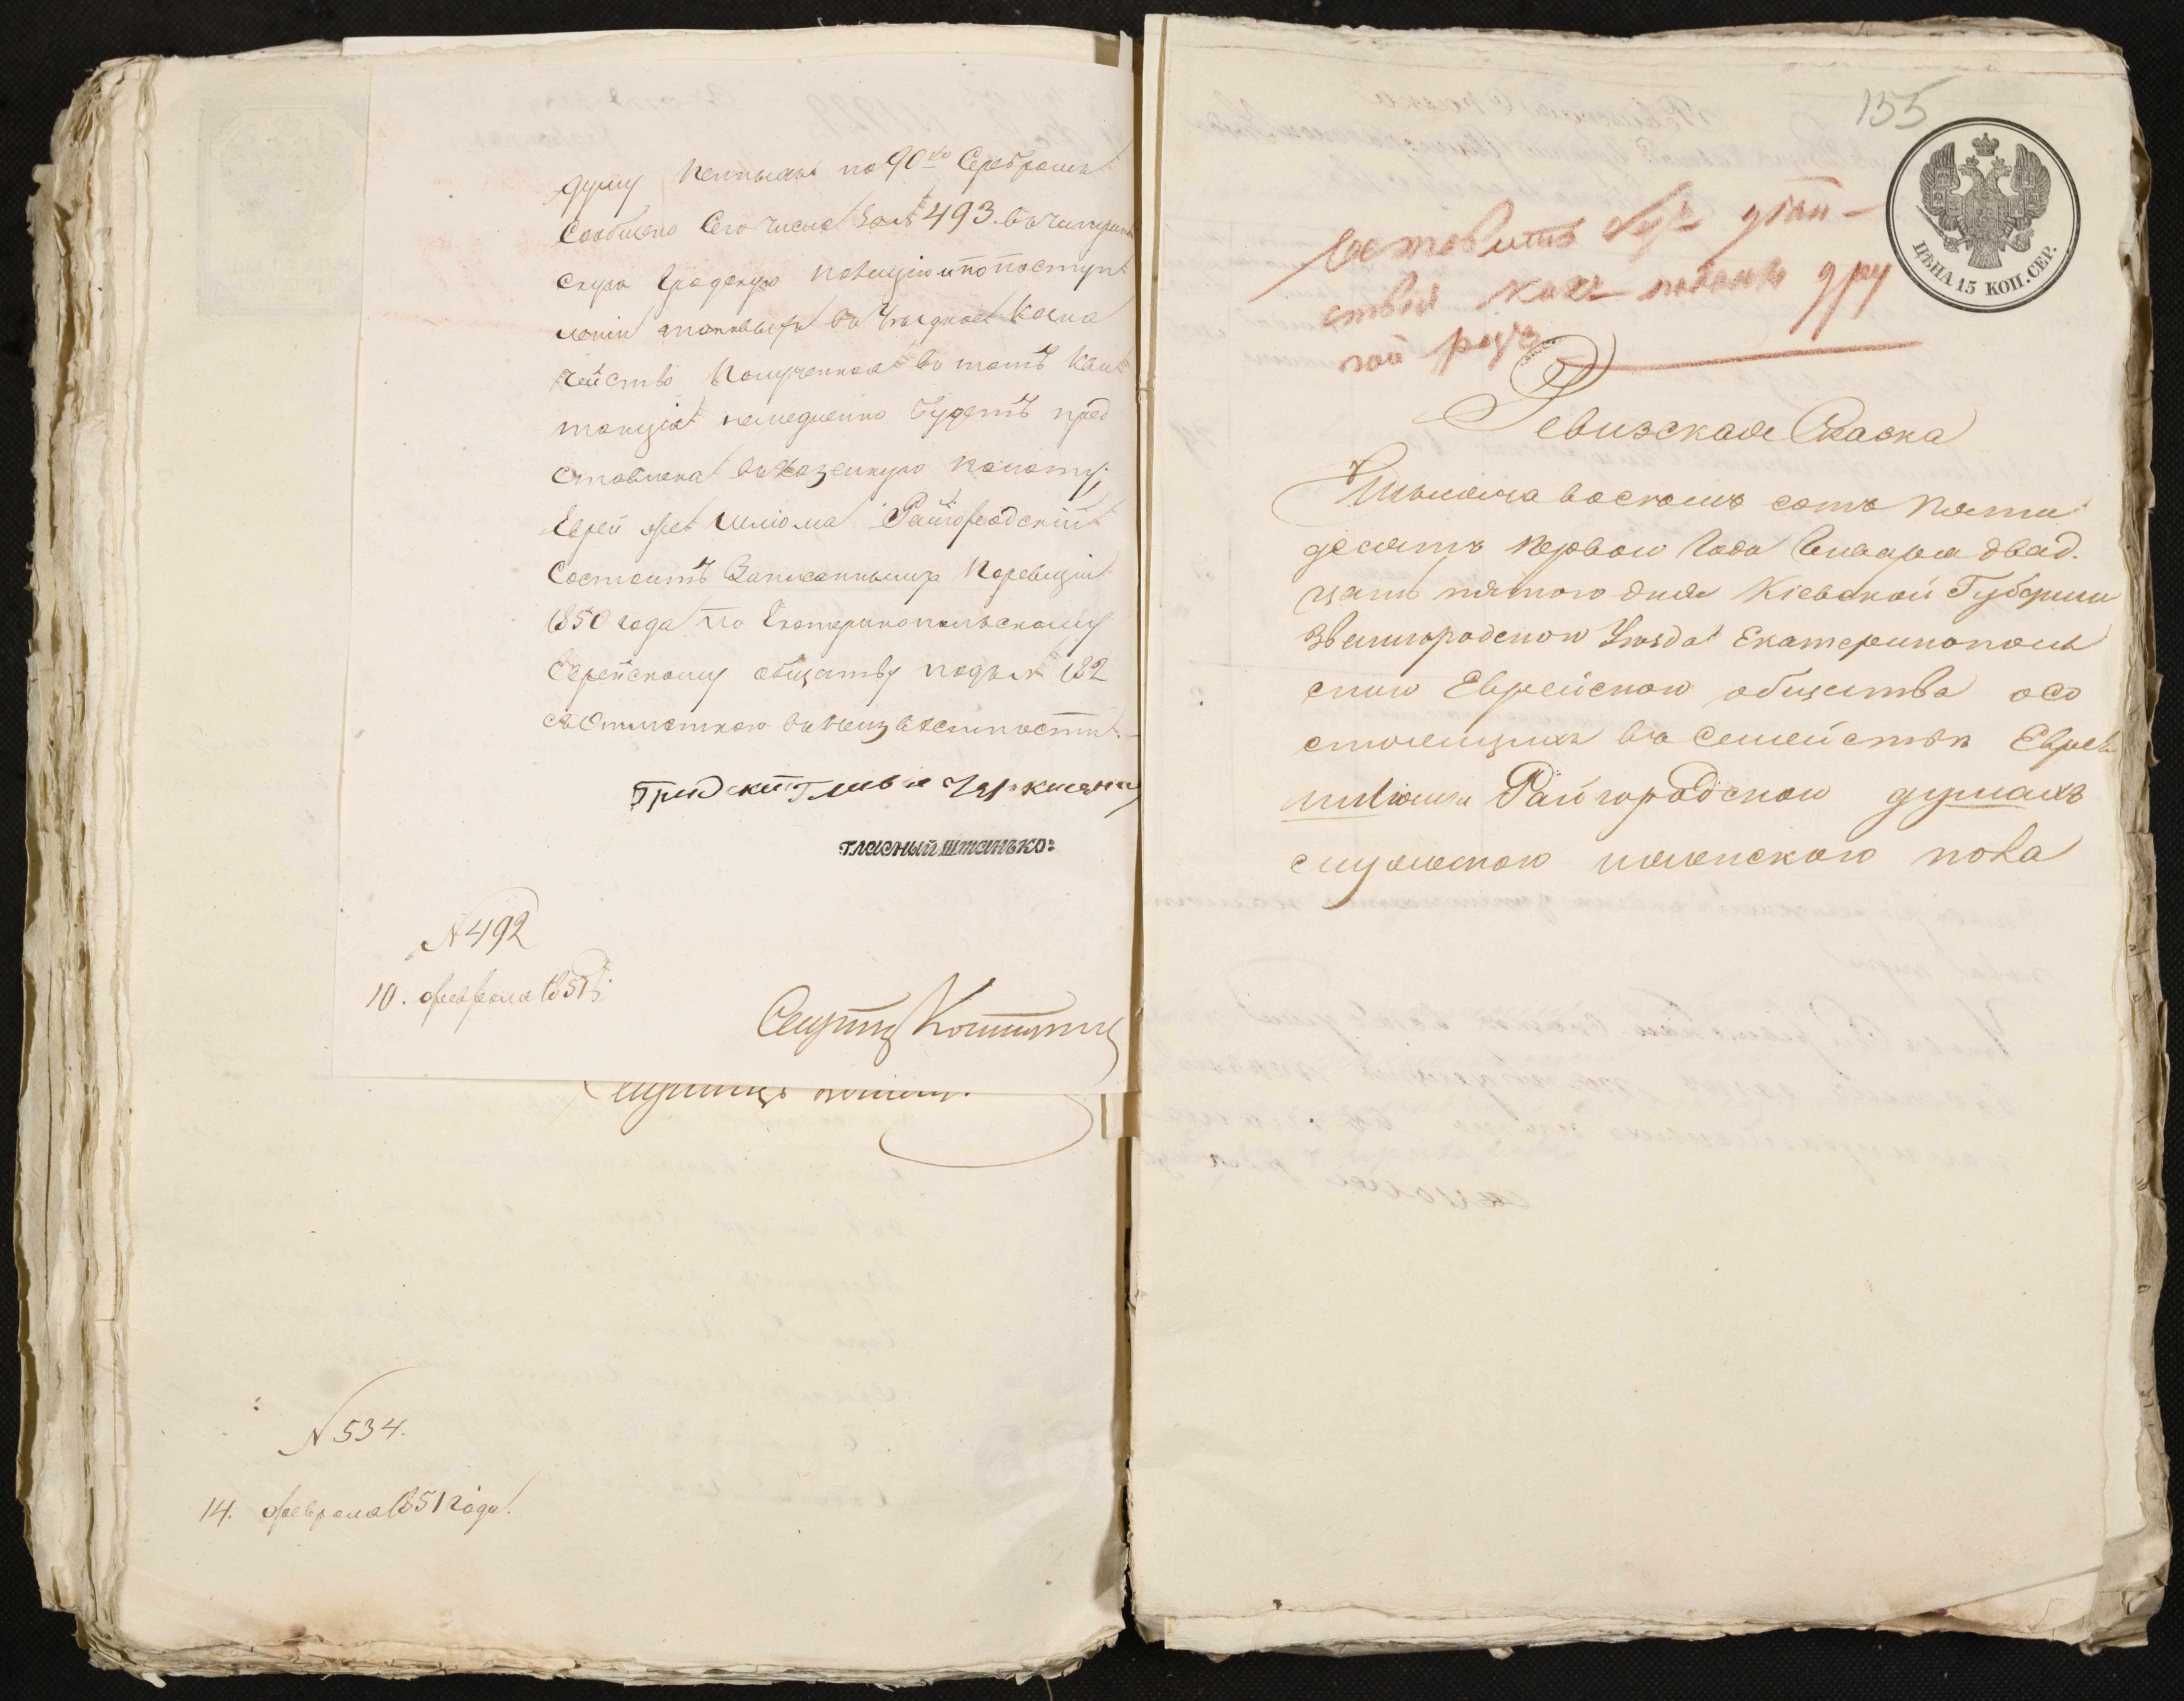 душу пенныхъ по 90 ко Серебромъ
Сообщено Сего числа за № 493. въ
скую Градскую полицію и по поступ
леніи таковыхъ въ Уѣздное Казна
чейство полученная въ томъ Кви
танція немедленно будетъ пред
ставлена въ Казенную палату;
Еврей же Шліома Райгородскій
Состоитъ Записаннымъ По ревизіи
1850 года по Екатеринопольскому
Еврейскому обществу подъ № 182
съ Отметкою въ неизвестности.
Градскій Глава
гласный штанько:
№ 492
10. февраля 1851 г.
№ 534.
14. февраля 1851 года.
155
ЦѢНА 15 КОП. СЕР.
Оставить безъ
ствія какъ поданы дру
гой разъ
Ревизская Сказка
Тысяча восемь сотъ пяти
десятъ первого Года Января двад.
цать пятого дня Кіевской Губерніи
Звенигородского Уѣзда Екатеринополь
ского Еврейского общества о со
стоящихъ въ Семействѣ Еврея
Шліомы Райгородского душахъ
мужеского и женского пола